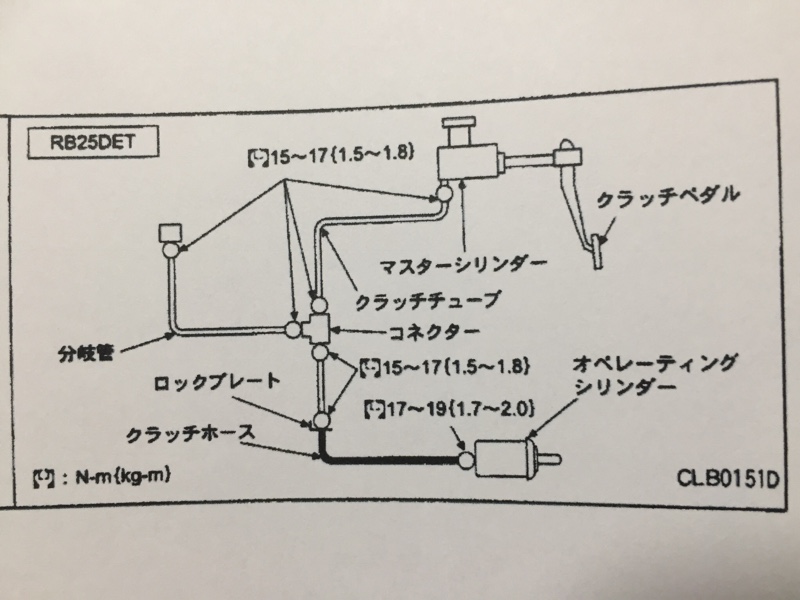 RB25DET
[ ]15～17{1.5～1.8}
クラッチペダル
マスターシリンダー
クラッチチューブ
コネクター
分岐管
[ ]15～17{1.5～1.8}
オペレーティング
シリンダー
ロックプレート
[ ]17～19{1.7～2.0}
クラッチホース
[ ] : N-m{kg-m}
CLB0151D